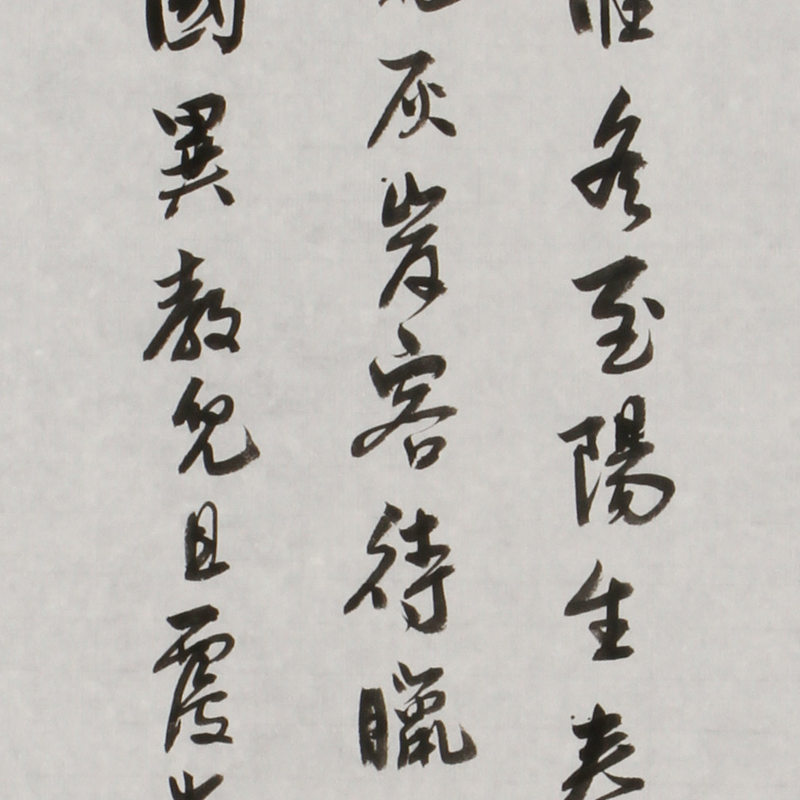 冬至陽生春
灰岸容待臘
國異教兒且覆